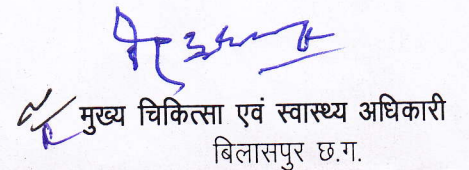 मुख्य चिकित्सा एवं स्वास्थ्य अधिकारी
बिलासपुर छ.ग.